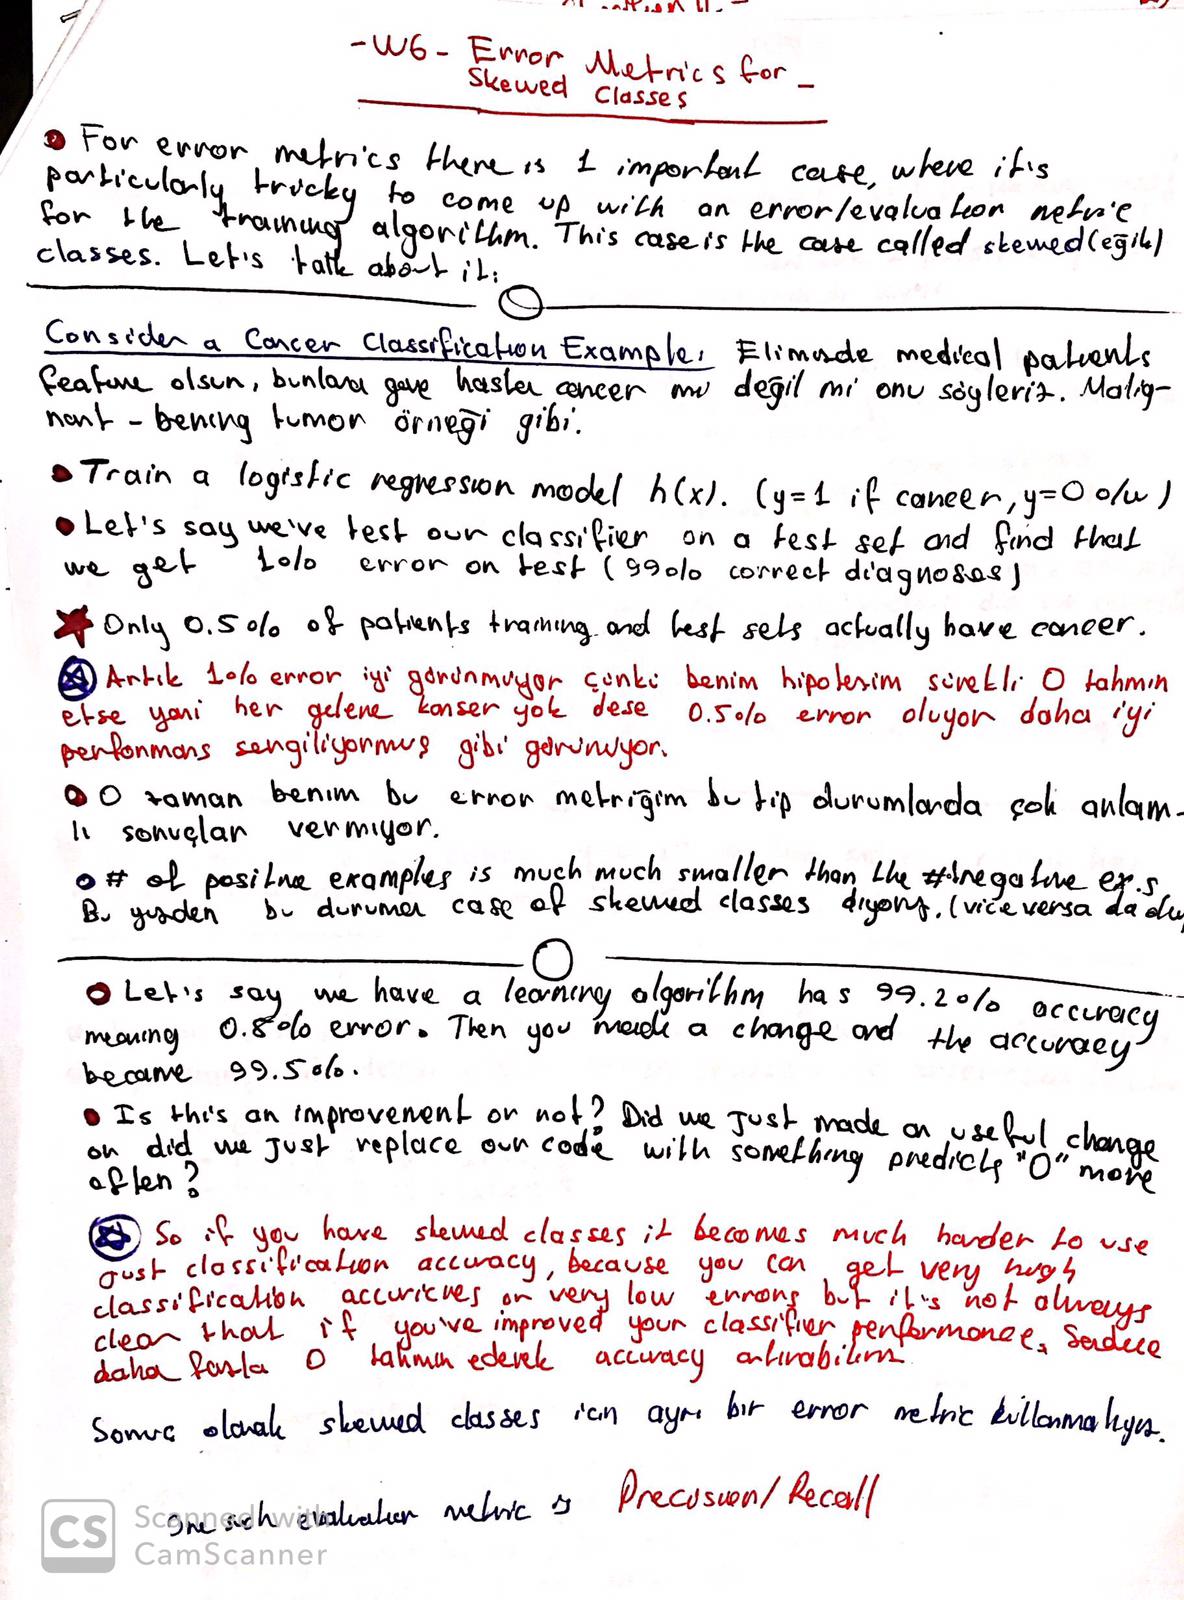 -W6- Error Metrics for -
Skewed Classes
For error metrics there is 1 important case, where it's
particularly tricky to come up with an error/evaluation metric
for the training algorithm. This case is the case called skewed (eğik)
classes. Let's talk about it:
Consider a Cancer Classification Example: Elimizde medical patients
feature olsun, bunlara göre hasta cancer mı değil mi onu söyleriz. Malig-
nant - bening tumor örneği gibi.
Train a logistic regression model h(x). (y=1 if cancer, y=0 o/w)
Let's say we've test our classifier on a test set and find that
we get 1% error on test (99% correct diagnoses)
Only 0.5% of patients training and test sets actually have cancer.
Artık 1% error iyi görünmüyor çünkü benim hipotezim sürekli 0 tahmin
etse yani her gelene kanser yok dese 0.5% error oluyor daha iyi
performans sergiliyormuş gibi görünüyor.
O zaman benim bu error metriğim bu tip durumlarda çok anlam-
lı sonuçlar vermiyor.
# of positive examples is much much smaller than the # negative ex.s
Bu yüzden bu duruma case of skewed classes diyoruz. (vice versa da olur
Let's say we have a learning algorithm has 99.2% accuracy
meaning 0.8% error. Then you made a change and the accuracy
became 99.5%.
Is this an improvement or not? Did we just made an useful change
or did we just replace our code with something predicts "0" more
often?
So if you have skewed classes it becomes much harder to use
just classification accuracy, because you can get very high
classification accuricies or very low errors but it's not always
clear that if you've improved your classifier performance. Sadece
daha fazla 0 tahmin ederek accuracy artırabilirim
Sonuç olarak skewed classes için ayrı bir error metric kullanmalıyız.
One such evaluation metric is Precision/Recall
CS Scanned with
CamScanner